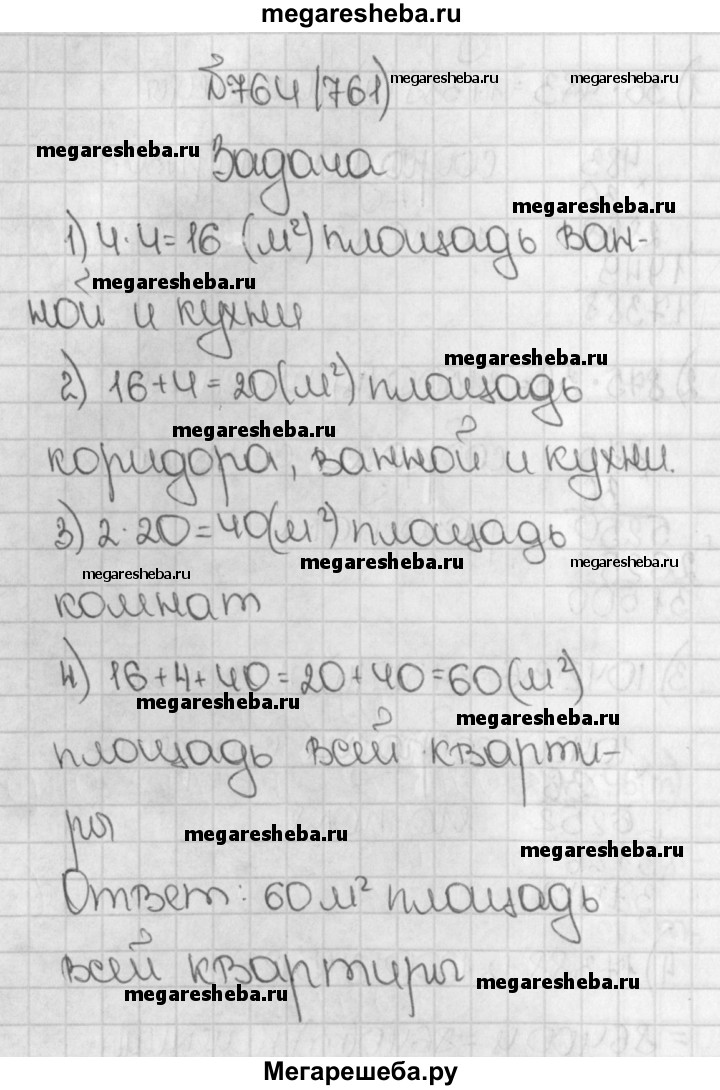 megaresheba.ru
№764 (761)
megaresheba.ru
megaresheba.ru
megaresheba.ru
Задача
megaresheba.ru
1) 4·4=16 (м²) площадь ван-
megaresheba.ru
ной и кухни
megaresheba.ru
2) 16+4=20(м²) площадь
megaresheba.ru
коридора, ванной и кухни.
3) 2·20=40(м²) площадь
megaresheba.ru
megaresheba.ru
megaresheba.ru
комнат
4) 16+4+40=20+40=60(м²)
megaresheba.ru
megaresheba.ru
площадь всей кварти-
ры
megaresheba.ru
megaresheba.ru
Ответ: 60 м² площадь
всей квартиры
megaresheba.ru
megaresheba.ru
Мегарешеба.ру